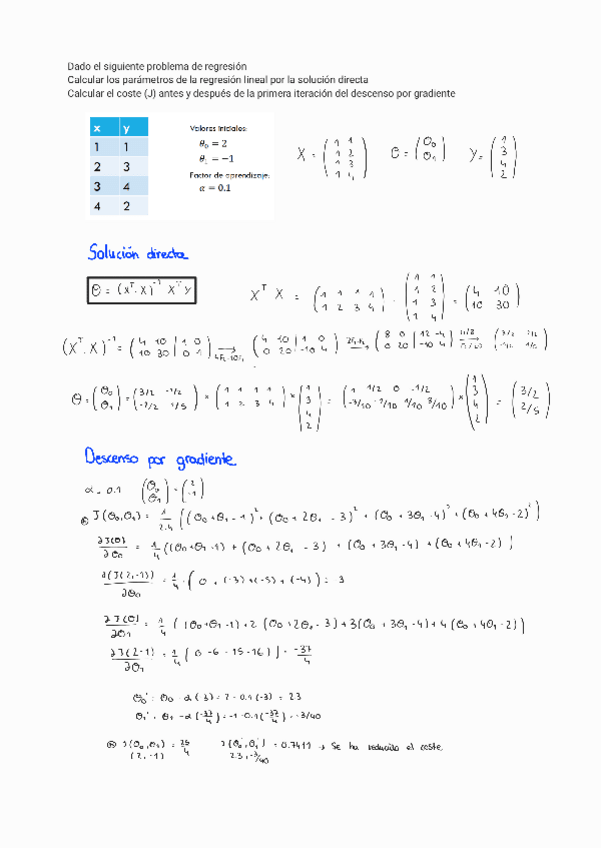 Dado el siguiente problema de regresión
Calcular los parámetros de la regresión lineal por la solución directa
Calcular el coste (J) antes y después de la primera iteración del descenso por gradiente
x y
1 1
2 3
3 4
4 2
Valores iniciales:
θ₀ = 2
θ₁ = −1
Factor de aprendizaje:
α = 0.1
X = (1 1; 1 2; 1 3; 1 4) Θ = (Θ₀; Θ₁) Y = (1; 3; 4; 2)
Solución directa
Θ = (Xᵀ·X)⁻¹ Xᵀ Y
Xᵀ X = (1 1 1 1; 1 2 3 4) · (1 1; 1 2; 1 3; 1 4) = (4 10; 10 30)
(Xᵀ·X)⁻¹ = (4 10 | 1 0; 10 30 | 0 1) → (4 10 | 1 0; 0 20 | -10 4) → (8 0 | 12 -4; 0 20 | -10 4) → (3/2 -1/2; -1/2 1/5)
Θ = (Θ₀; Θ₁) = (3/2 -1/2; -1/2 1/5) × (1 1 1 1; 1 2 3 4) × (1; 3; 4; 2) = (1 1/2 0 -1/2; -3/10 -1/10 1/10 3/10) × (1; 3; 4; 2) = (3/2; 2/5)
Descenso por gradiente
α = 0.1 (Θ₀; Θ₁) = (2; -1)
J(Θ₀,Θ₁) = 1/2·4 ((Θ₀+Θ₁-1)² + (Θ₀+2Θ₁-3)² + (Θ₀+3Θ₁-4)² + (Θ₀+4Θ₁-2)²)
∂J(Θ)/∂Θ₀ = 1/4 ((Θ₀+Θ₁-1) + (Θ₀+2Θ₁-3) + (Θ₀+3Θ₁-4) + (Θ₀+4Θ₁-2))
∂(J(2,-1))/∂Θ₀ = 1/4 · (0 + (-3) + (-5) + (-4)) = 3
∂J(Θ)/∂Θ₁ = 1/4 ((Θ₀+Θ₁-1) + 2(Θ₀+2Θ₁-3) + 3(Θ₀+3Θ₁-4) + 4(Θ₀+4Θ₁-2))
∂J(2-1)/∂Θ₁ = 1/4 (0 -6 -15 -16) = -37/4
Θ₀' = Θ₀ - α(3) = 2 - 0.1(-3) = 2.3
Θ₁' = Θ₁ - α(-37/4) = -1 - 0.1(-37/4) = -3/40
J(Θ₀,Θ₁) = 25/4 J(Θ₀',Θ₁') = 0.7419 → Se ha reducido el coste.
(2,-1) 2.3,-3/40